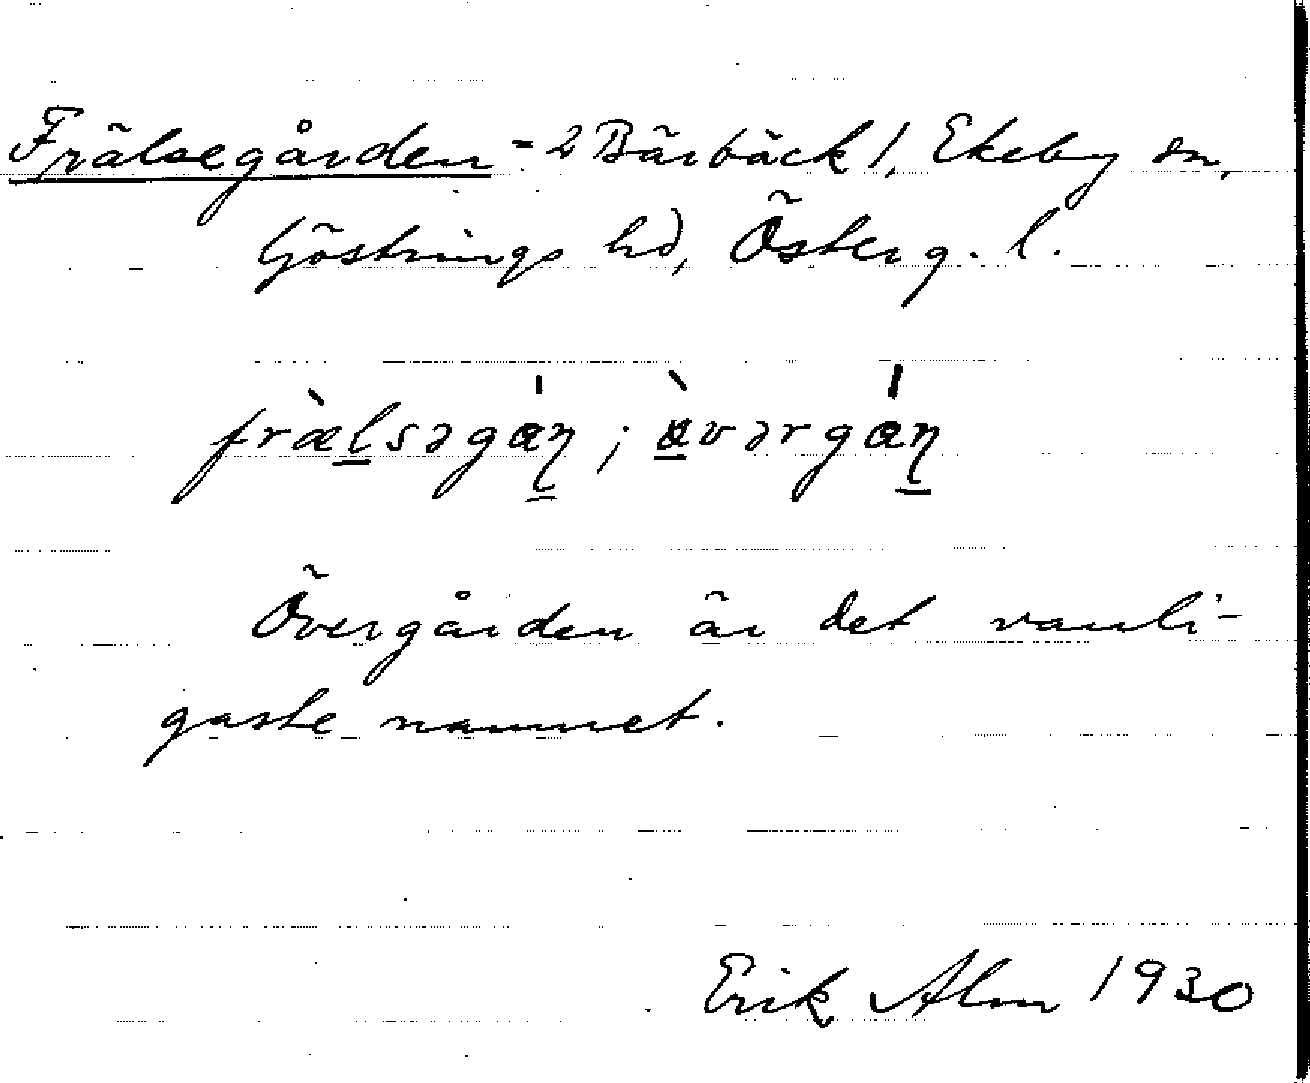 Frälsegården = 2 Bärbäck 1, Ekeby sn,
Göstrings hd, Österg. l.
fræ̀lsəgán; àvərgán
Övergården är det vanli-
gaste namnet.
Erik Alm 1930